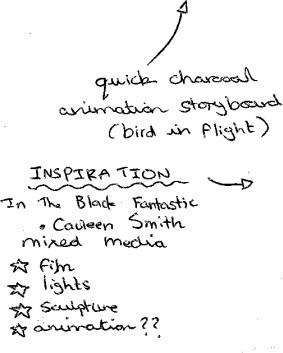 quick charcoal
animation storyboard
(bird in flight)
INSPIRATION
In The Black Fantastic
• Cauleen Smith
mixed media
☆ film
☆ lights
☆ sculpture
☆ animation??